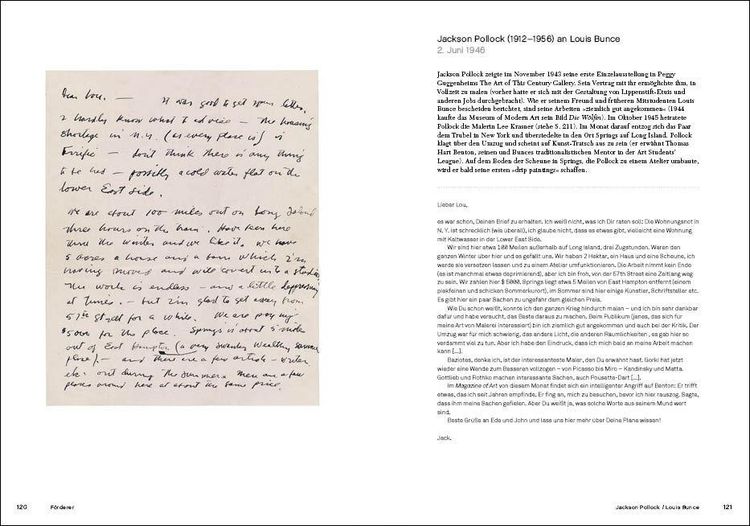 Dear Lou. — It was good to get your letter.
I hardly know what to advice — The housing
shortage in N.Y. (as every place is) is
terrific — don't think there is any thing
to be had — possibly a cold water flat on the
lower East Side.
We are about 100 miles out on Long Island
three hours on the train. Have been here
thru the winter and we like it. We have
5 acres a house and a barn which I'm
having moved and will covert into a studio.
The work is endless — and a little depressing
at times. — but I'm glad to get away from
57th street for a while. We are paying
$5000 for the place. Springs is about 5 miles
out of East Hampton (a very swanky wealthy summer
place) — and there are a few artists — writers
etc. out during the summers. There are a few
places around here at about the same price.
120 Förderer
Jackson Pollock (1912–1956) an Louis Bunce
2. Juni 1946
Jackson Pollock zeigte im November 1943 seine erste Einzelausstellung in Peggy
Guggenheims The Art of This Century Gallery. Sein Vertrag mit ihr ermöglichte ihm, in
Vollzeit zu malen (vorher hatte er sich mit der Gestaltung von Lippenstift-Etuis und
anderen Jobs durchgebracht). Wie er seinem Freund und früheren Mitstudenten Louis
Bunce bescheiden berichtet, sind seine Arbeiten »ziemlich gut angekommen« (1944
kaufte das Museum of Modern Art sein Bild Die Wölfin). Im Oktober 1945 heiratete
Pollock die Malerin Lee Krasner (siehe S. 211). Im Monat darauf entzog sich das Paar
dem Trubel in New York und übersiedelte in den Ort Springs auf Long Island. Pollock
klagt über den Umzug und scheint auf Kunst-Tratsch aus zu sein (er erwähnt Thomas
Hart Benton, seinen und Bunces traditionalistischen Mentor in der Art Students'
League). Auf dem Boden der Scheune in Springs, die Pollock zu einem Atelier umbaute,
wird er bald seine ersten »drip paintings« schaffen.
Lieber Lou,
es war schön, Deinen Brief zu erhalten. Ich weiß nicht, was ich Dir raten soll: Die Wohnungsnot in
N. Y. ist schrecklich (wie überall), ich glaube nicht, dass es etwas gibt, vielleicht eine Wohnung
mit Kaltwasser in der Lower East Side.
Wir sind hier etwa 100 Meilen außerhalb auf Long Island, drei Zugstunden. Waren den
ganzen Winter über hier und es gefällt uns. Wir haben 2 Hektar, ein Haus und eine Scheune, ich
werde sie versetzen lassen und zu einem Atelier umfunktionieren. Die Arbeit nimmt kein Ende
(es ist manchmal etwas deprimierend), aber ich bin froh, von der 57th Street eine Zeitlang weg
zu sein. Wir zahlen hier $ 5000. Springs liegt etwa 5 Meilen von East Hampton entfernt (einem
piekfeinen und schicken Sommerkurort), im Sommer sind hier einige Künstler, Schriftsteller etc.
Es gibt hier ein paar Sachen zu ungefähr dem gleichen Preis.
Wie Du schon weißt, konnte ich den ganzen Krieg hindurch malen – und ich bin sehr dankbar
dafür und habe versucht, das Beste daraus zu machen. Beim Publikum (jenes, das sich für
meine Art von Malerei interessiert) bin ich ziemlich gut angekommen und auch bei der Kritik. Der
Umzug war für mich schwierig, das andere Licht, die anderen Räumlichkeiten, es gab hier so
verdammt viel zu tun. Aber ich habe den Eindruck, dass ich mich bald an meine Arbeit machen
kann [...].
Baziotes, denke ich, ist der interessanteste Maler, den Du erwähnt hast. Gorki hat jetzt
wieder eine Wende zum Besseren vollzogen – von Picasso bis Miro – Kandinsky und Matta.
Gottlieb und Rothko machen interessante Sachen, auch Pousette-Dart [...].
Im Magazine of Art von diesem Monat findet sich ein intelligenter Angriff auf Benton: Er trifft
etwas, das ich seit Jahren empfinde. Er fing an, mich zu besuchen, bevor ich hier rauszog. Sagte,
dass ihm meine Sachen gefielen. Aber Du weißt ja, was solche Worte aus seinem Mund wert
sind.
Beste Grüße an Eda und John und lass uns hier mehr über Deine Pläne wissen!
Jack.
Jackson Pollock / Louis Bunce 121